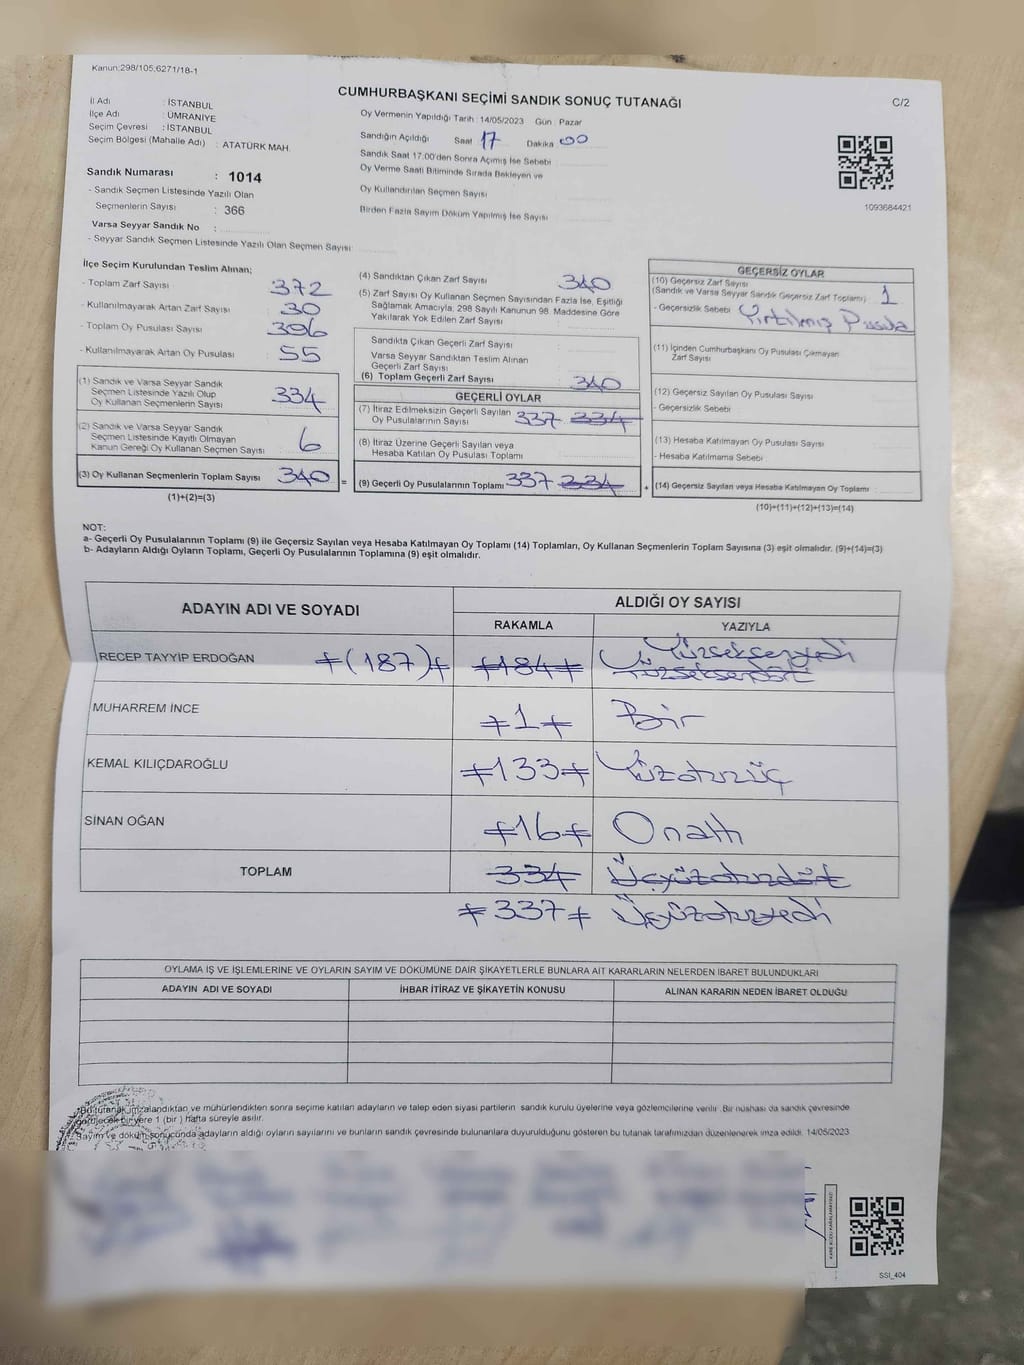 Kanun:298/105,6271/18-1
CUMHURBAŞKANI SEÇİMİ SANDIK SONUÇ TUTANAĞI
C/2
İl Adı : İSTANBUL
İlçe Adı : ÜMRANİYE
Seçim Çevresi : İSTANBUL
Seçim Bölgesi (Mahalle Adı) : ATATÜRK MAH.
Sandık Numarası : 1014
- Sandık Seçmen Listesinde Yazılı Olan
Seçmenlerin Sayısı : 366
Varsa Seyyar Sandık No :
- Seyyar Sandık Seçmen Listesinde Yazılı Olan Seçmen Sayısı
Oy Vermenin Yapıldığı Tarih : 14/05/2023 Gün : Pazar
Sandığın Açıldığı Saat 17 Dakika 00
Sandık Saat 17:00'den Sonra Açımış İse Sebebi
Oy Verme Saati Bitiminde Sırada Bekleyen ve
Oy Kullandırılan Seçmen Sayısı
Birden Fazla Sayım Döküm Yapılmış İse Sayısı
1093684421
İlçe Seçim Kurulundan Teslim Alınan;
- Toplam Zarf Sayısı 372
- Kullanılmayarak Artan Zarf Sayısı 30
- Toplam Oy Pusulası Sayısı 396
- Kullanılmayarak Artan Oy Pusulası 55
(1) Sandık ve Varsa Seyyar Sandık
Seçmen Listesinde Yazılı Olup
Oy Kullanan Seçmenlerin Sayısı 334
(2) Sandık ve Varsa Seyyar Sandık
Seçmen Listesinde Kayıtlı Olmayan
Kanun Gereği Oy Kullanan Seçmen Sayısı 6
(3) Oy Kullanan Seçmenlerin Toplam Sayısı 340 =
(1)+(2)=(3)
(4) Sandıktan Çıkan Zarf Sayısı 340
(5) Zarf Sayısı Oy Kullanan Seçmen Sayısından Fazla İse, Eşitliği
Sağlamak Amacıyla, 298 Sayılı Kanunun 98. Maddesine Göre
Yakılarak Yok Edilen Zarf Sayısı
Sandıkta Çıkan Geçerli Zarf Sayısı
Varsa Seyyar Sandıktan Teslim Alınan
Geçerli Zarf Sayısı
(6) Toplam Geçerli Zarf Sayısı 340
GEÇERLİ OYLAR
(7) İtiraz Edilmeksizin Geçerli Sayılan
Oy Pusulalarının Sayısı 337 334
(8) İtiraz Üzerine Geçerli Sayılan veya
Hesaba Katılan Oy Pusulası Toplamı
(9) Geçerli Oy Pusulalarının Toplamı 337 334 +
GEÇERSİZ OYLAR
(10) Geçersiz Zarf Sayısı
(Sandık ve Varsa Seyyar Sandık Geçersiz Zarf Toplamı) 1
- Geçersizlik Sebebi Yırtılmış Pusula
(11) İçinden Cumhurbaşkanı Oy Pusulası Çıkmayan
Zarf Sayısı
(12) Geçersiz Sayılan Oy Pusulası Sayısı
- Geçersizlik Sebebi
(13) Hesaba Katılmayan Oy Pusulası Sayısı
- Hesaba Katılmama Sebebi
(14) Geçersiz Sayılan veya Hesaba Katılmayan Oy Toplamı
(10)+(11)+(12)+(13)=(14)
NOT:
a- Geçerli Oy Pusulalarının Toplamı (9) ile Geçersiz Sayılan veya Hesaba Katılmayan Oy Toplamı (14) Toplamları, Oy Kullanan Seçmenlerin Toplam Sayısına (3) eşit olmalıdır. (9)+(14)=(3)
b- Adayların Aldığı Oyların Toplamı, Geçerli Oy Pusulalarının Toplamına (9) eşit olmalıdır.
ADAYIN ADI VE SOYADI ALDIĞI OY SAYISI
RAKAMLA YAZIYLA
RECEP TAYYİP ERDOĞAN (187) 184 Yüzseksenyedi
Yüzseksendört
MUHARREM İNCE 1 Bir
KEMAL KILIÇDAROĞLU 133 Yüzotuzüç
SİNAN OĞAN 16 Onaltı
TOPLAM 334 Üçyüzotuzdört
337 Üçyüzotuzyedi
OYLAMA İŞ VE İŞLEMLERİNE VE OYLARIN SAYIM VE DÖKÜMÜNE DAİR ŞİKAYETLERLE BUNLARA AİT KARARLARIN NELERDEN İBARET BULUNDUKLARI
ADAYIN ADI VE SOYADI İHBAR İTİRAZ VE ŞİKAYETİN KONUSU ALINAN KARARIN NEDEN İBARET OLDUĞU
Bu tutanak imzalandıktan ve mühürlendikten sonra seçime katılan adayların ve talep eden siyasi partilerin sandık kurulu üyelerine veya gözlemcilerine verilir. Bir nüshası da sandık çevresinde
görülecek bir yere 1 (bir) hafta süreyle asılır.
Sayım ve döküm sonucunda adayların aldığı oyların sayılarını ve bunların sandık çevresinde bulunanlara duyurulduğunu gösteren bu tutanak tarafımızdan düzenlenerek imza edildi. 14/05/2023
SSI_404